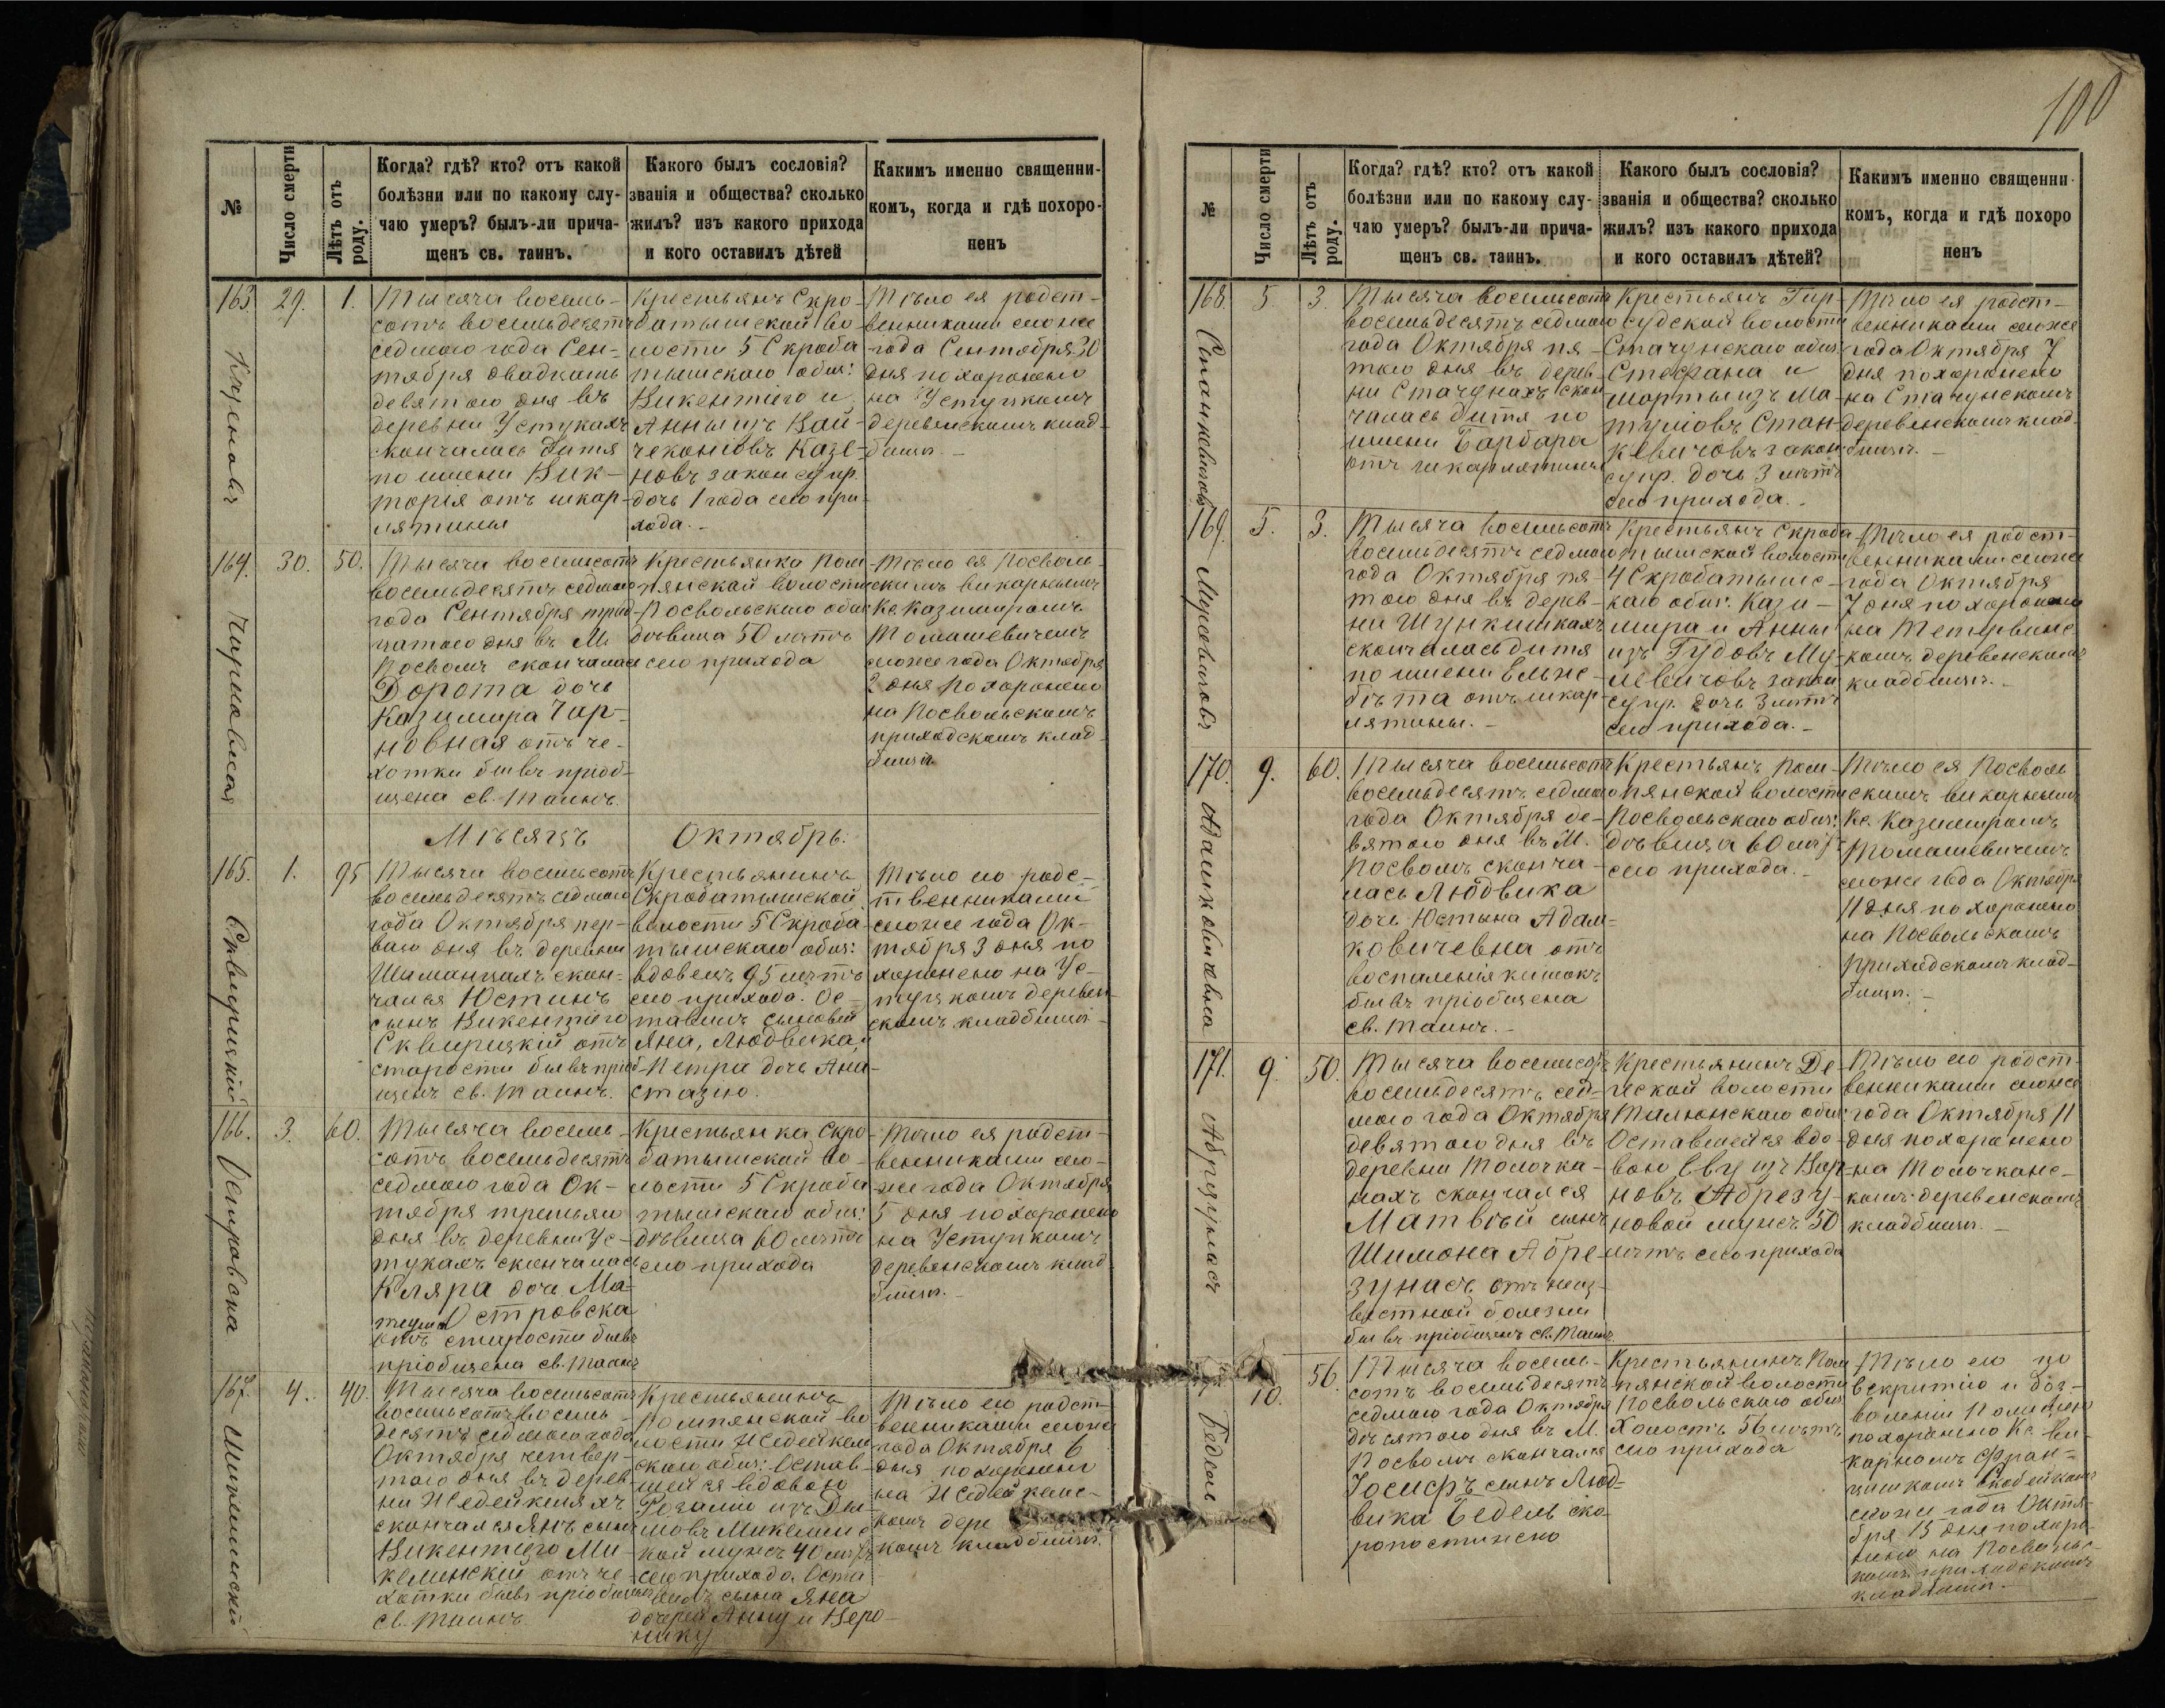 100
№
Число смерти
Лѣтъ отъ роду.
Когда? гдѣ? кто? отъ какой
болѣзни или по какому слу-
чаю умеръ? былъ-ли прича-
щенъ св. таинъ.
Какого былъ сословія?
званія и общества? сколько
жилъ? изъ какого прихода
и кого оставилъ дѣтей
Какимъ именно священни-
комъ, когда и гдѣ похоро-
ненъ
163.
29.
1.
Тысяча восемь-
сотъ восемьдесятъ
седмого года Сен-
тября двадцать
девятого дня въ
деревни Устукахъ
скончалась дитя
по имени Вик-
торія отъ шкар-
лятины
Крестьянъ Скро-
батышской во-
лости 5 Скроба
тышскаго общ:
Викентіего и
Анны изъ Вай-
чеконовъ Казе-
новъ закон супр.
дочь 1 года сего при-
хода.-
Тѣло ея родст-
венниками сегоже
года Сентября 30
дня похоронено
на Устукскомъ
деревенскомъ клад-
бищѣ.-
164.
30.
50.
Тысяча восемьсотъ
восемьдесятъ седмого
года Сентября трид-
цатого дня въ М.
Посволь скончалась
Дорота дочь
Казимира Чар-
новная отъ че-
хотки бывъ пріоб-
щена св. Таинъ.
Крестьянка Пом-
пянской волости
Посвольскаго общ
дѣвица 50 лѣтъ
сего прихода
Тѣло ея Посволь-
скимъ викарнымъ
Кс. Казимиромъ
Томашевичемъ
сегоже года Октября
2 дня похоронено
на Посвольскомъ
приходскомъ клад-
бищѣ
Мѣсяцъ Октябрь.
165.
1.
95
Сквирицкій
Тысяча восемьсотъ
восемьдесятъ седмого
года Октября пер-
ваго дня въ деревни
Шиманцахъ скон-
чался Юстинъ
сынъ Викентіего
Сквирицкій отъ
старости бывъ пріоб-
щенъ св. Таинъ.
Крестьянинъ
Скробатышской
волости 5 Скроба-
тышскаго общ:
вдовецъ 95 лѣтъ
сего прихода. Ос-
тавилъ сыновей
Яна, Людвика, и
Петра дочь Ана-
стазію.
Тѣло его родс-
твенниками
сегоже года Ок-
тября 3 дня по
хоронено на Ус-
тукскомъ деревен-
скомъ кладбищѣ.-
166.
3.
60.
Островска
Тысяча восемь-
сотъ восемьдесятъ
седмого года Ок-
тября третьяго
дня въ деревни Ус-
тукахъ скончалась
Кляра дочь Ма-
теуша Островска
отъ старости бывъ
пріобщена св. Таинъ
Крестьянка Скро-
батышской во-
лости 5 Скроба
тышскаго общ:
дѣвица 60 лѣтъ
сего прихода
Тѣло ея родст-
венниками сего-
же года Октября
5 дня похоронено
на Устукскомъ
деревенскомъ клад-
бищѣ.-
167.
4.
40.
Тысяча восемьсотъ
восемьсотъ восемь-
десятъ седмого года
Октября четвер-
того дня въ дерев-
ни Недейкшяхъ
скончался Янъ сынъ
Викентіего Ми-
келинскій отъ че-
хотки бывъ пріобщенъ
св. Таинъ.
Крестьянинъ
Помпянской во-
лости
скаго общ: Остав-
шейся вдовою
Розалію изъ
кой мужъ 40 лѣтъ
сего прихода Оста
вилъ сына Яна
дочерей Анну и Веро-
нику
Тѣло его родст-
венниками сегоже
года Октября 6
дня похоронено
на
комъ дере
комъ кладбищѣ.
№
Число смерти
Лѣтъ отъ роду.
Когда? гдѣ? кто? отъ какой
болѣзни или по какому слу-
чаю умеръ? былъ-ли прича-
щенъ св. таинъ.
Какого былъ сословія?
званія и общества? сколько
жилъ? изъ какого прихода
и кого оставилъ дѣтей?
Какимъ именно священни-
комъ, когда и гдѣ похоро
ненъ
168.
5.
3.
Тысяча восемьсотъ
восемьдесятъ седмого
года Октября пя-
того дня въ дерев-
ни Стачунахъ скон-
чалась дитя по
имени Барбара
отъ шкарлятины
Крестьянъ Гир-
судской волости
Стачунскаго общ:
Стефана и
Марты изъ Ма-
тулювъ Стан-
кевичовъ закон
супр. дочь 3 лѣтъ
сего прихода.-
Тѣло ея родст-
венниками сегоже
года Октября 7
дня похоронено
на Стачунскомъ
деревенскомъ клад-
бищѣ.-
169.
5.
3.
Тысяча восемьсотъ
восемьдесятъ седмого
года Октября пя-
того дня въ дерев-
ни Шункишкахъ
скончалась дитя
по имени Ельже-
бѣта отъ шкар-
лятины.-
Крестьянъ Скроба-
тышской волости
4 Скробатышс-
каго общ. Кази-
мира и Анны
изъ Гудовъ Му-
левичовъ закон
супр. дочь 3 лѣтъ
сего прихода.-
Тѣло ея родст-
венниками сегоже
года Октября
7 дня похоронено
на Тетервинс-
комъ деревенскомъ
кладбищѣ.-
170.
9.
60.
Тысяча восемьсотъ
восемьдесятъ седмого
года Октября де-
вятого дня въ М.
Посволь сконча-
лась Людвика
дочь Юстына Адам-
ковичевна отъ
воспаленія кишокъ
бывъ пріобщена
св. Таинъ.-
Крестьянъ Пом-
пянской волости
Посвольскаго общ:
дѣвица 60 лѣт
сего прихода.-
Тѣло ея Посволь
скимъ викарнымъ
Кс. Казимиромъ
Томашевичемъ
сегоже года Октября
11 дня похоронено
на Посвольскомъ
приходскомъ клад-
бищѣ.-
171.
9.
50.
Абризунасъ
Тысяча восемьсотъ
восемьдесятъ сед-
мого года Октября
девятого дня въ
деревни Толочка-
нахъ скончался
Матвѣй сынъ
Шимона Абре-
зунасъ отъ неиз-
вѣстной болезни
бывъ пріобщенъ св. Таинъ
Крестьянинъ
волости
общ:
Оставшейся вдо-
вою Еву изъ
новъ Абрезу-
новой мужъ 50
лѣтъ сего прихода
Тѣло его родст-
венниками сегоже
года Октября 11
дня похоронено
на Толочканс-
комъ деревенскомъ
кладбищѣ.-
10.
56.
Бедель
Тысяча восемь-
сотъ восемьдесятъ
седмого года Октября
десятого дня въ М.
Посволь скончался
Іосифъ сынъ Люд-
вика Бедель ско-
ропостижно
Крестьянинъ Пом
пянской волости
Посвольскаго общ
Холостъ 56 лѣтъ
сего прихода
Тѣло его по
вскрытію и доз-
воленіи Полиціею
похоронено Кс. Ви-
карномъ Фран-
цишкомъ
сегоже года Октя-
бря 13 дня похоро-
нено на Посвольс-
комъ приходскомъ
кладбищѣ.-